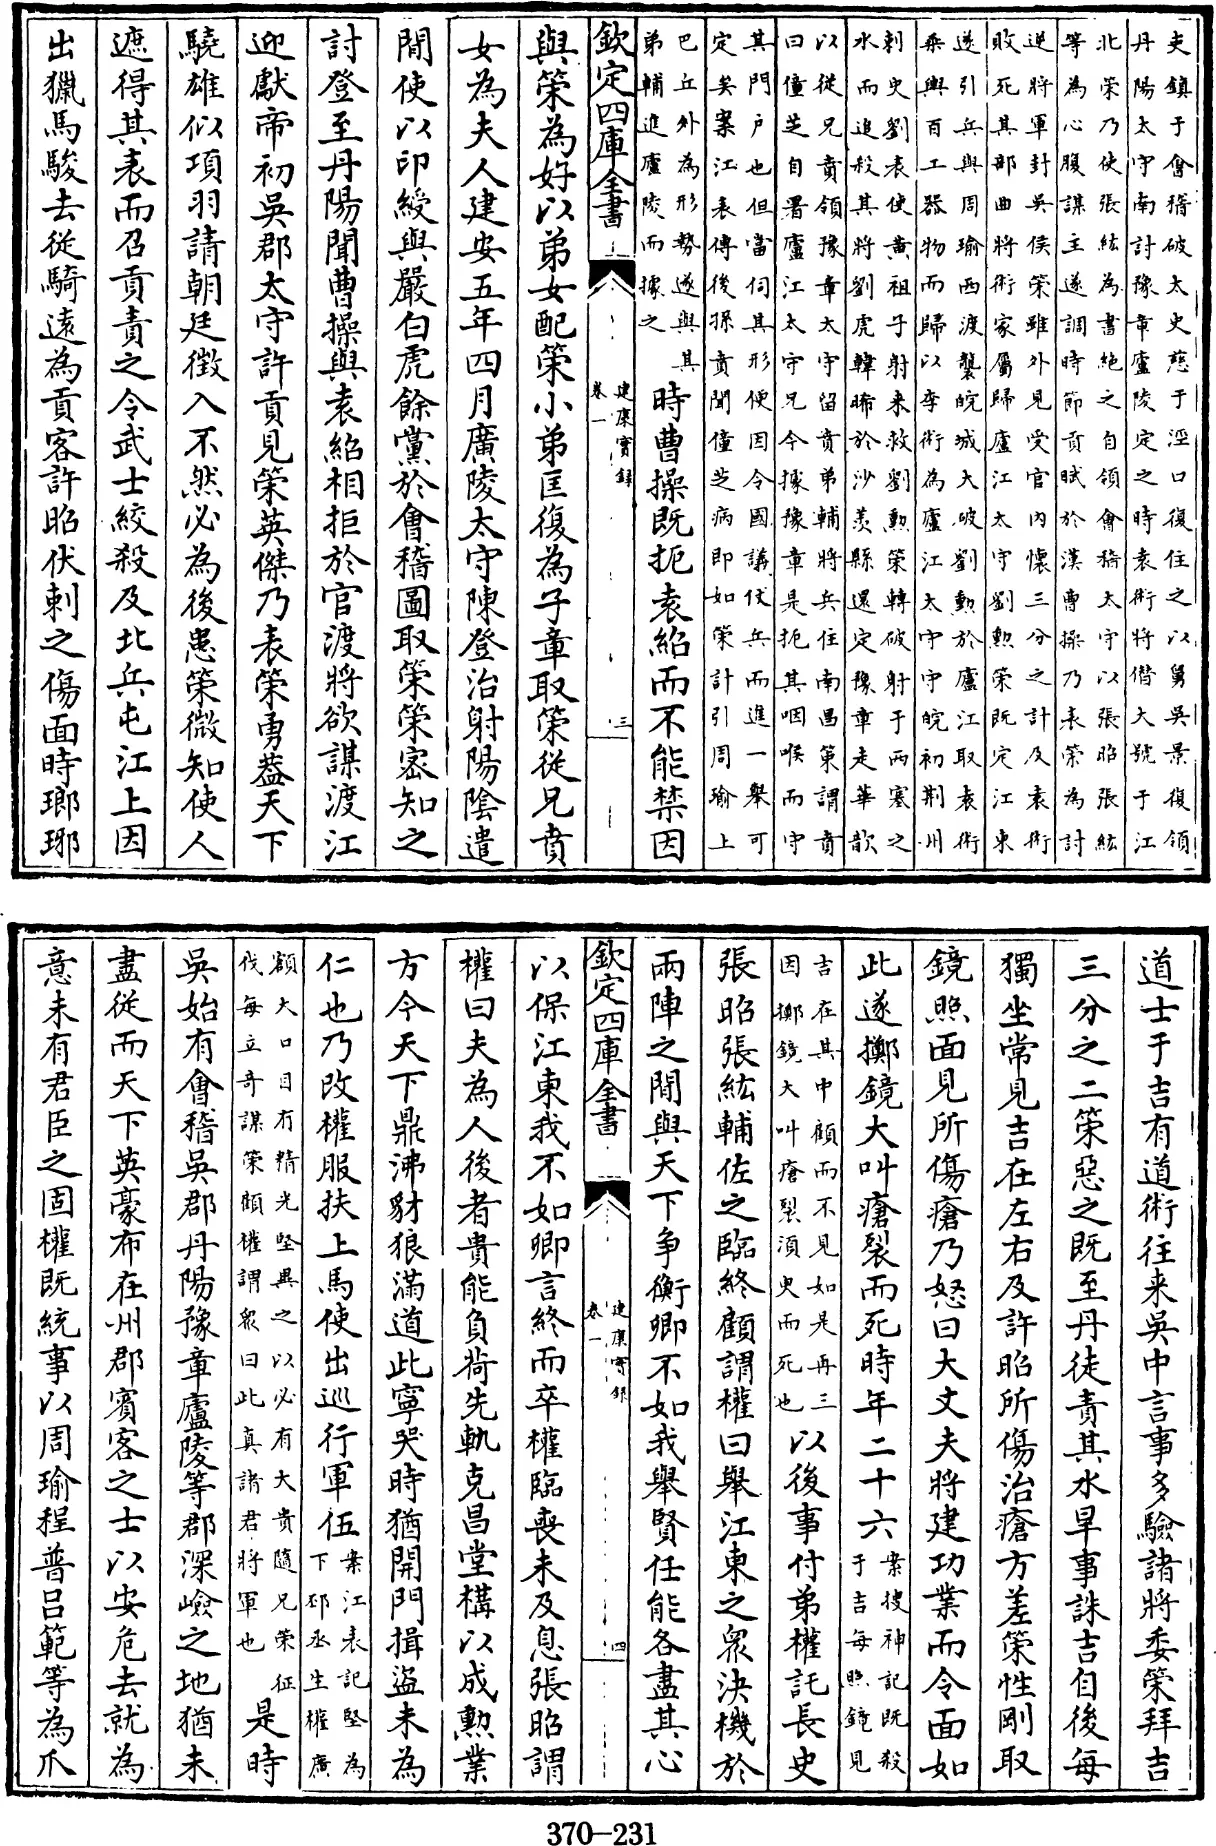 吏鎮于會稽破太史慈于涇口復住之以舅吳景復領
丹陽太守南討豫章廬陵定之時袁術將僭大號于江
北策乃使張紘為書絶之自領會稽太守以張昭張紘
等為心腹謀主遂調時節貢賦於漢曹操乃表策為討
逆將軍封吳侯策雖外見受官内懷三分之計及袁術
敗死其部曲將術家屬歸廬江太守劉勲策既定江東
遂引兵與周瑜西渡襲皖城大破劉勲於廬江取袁術
乘輿百工器物而歸以李術為廬江太守守皖初荆州
刺史劉表使黃祖子射来救劉勲策轉破射于西塞之
水而追殺其將劉虎韓晞於沙羡縣還定豫章走華歆
以從兄賁領豫章太守留賁弟輔將兵住南昌策謂賁
曰僮芝自署廬江太守兄今據豫章是扼其咽喉而守
其門户也但當伺其形便因令國議伐兵而進一舉可
定矣案江表傳後孫賁聞僮芝病即如策計引周瑜上
巴丘外為形勢遂與其
弟輔進廬陵而據之
時曹操既扼袁紹而不能禁因
欽定四庫全書
建康實録
卷一
三
與策為好以弟女配策小弟匡復為子章取策從兄賁
女為夫人建安五年四月廣陵太守陳登治射陽陰遣
間使以印綬與嚴白虎餘黨於會稽圖取策策密知之
討登至丹陽聞曹操與袁紹相拒於官渡將欲謀渡江
迎獻帝初吳郡太守許貢見策英傑乃表策勇葢天下
驍雄似項羽請朝廷徵入不然必為後患策微知使人
遮得其表而召貢責之令武士絞殺及北兵屯江上因
出獵馬駿去從騎遠為貢客許昭伏刺之傷面時瑯琊
道士于吉有道術往来吳中言事多驗諸將委策拜吉
三分之二策惡之既至丹徒責其水旱事誅吉自後每
獨坐常見吉在左右及許昭所傷治瘡方差策性剛取
鏡照面見所傷瘡乃怒曰大丈夫將建功業而令面如
此遂擲鏡大叫瘡裂而死時年二十六
案搜神記既殺
于吉每照鏡見
吉在其中顧而不見如是再三
因擲鏡大叫瘡裂湏臾而死也
以後事付弟權託長史
張昭張紘輔佐之臨終顧謂權曰舉江東之衆決機於
兩陣之間與天下争衡卿不如我舉賢任能各盡其心
欽定四庫全書
建康實録
卷一
四
以保江東我不如卿言終而卒權臨喪未及息張昭謂
權曰夫為人後者貴能負荷先軌克昌堂構以成勲業
方今天下鼎沸豺狼滿道此寧哭時猶開門揖盜未為
仁也乃改權服扶上馬使出巡行軍伍
案江表記堅為
下邳丞生權廣
額大口目有精光堅異之以必有大貴隨兄策征
伐每立奇謀策顧權謂衆曰此真諸君將軍也
是時
吳始有會稽吳郡丹陽豫章廬陵等郡深嶮之地猶未
盡從而天下英豪布在州郡賓客之士以安危去就為
意未有君臣之固權既統事以周瑜程普吕範等為爪
370-231